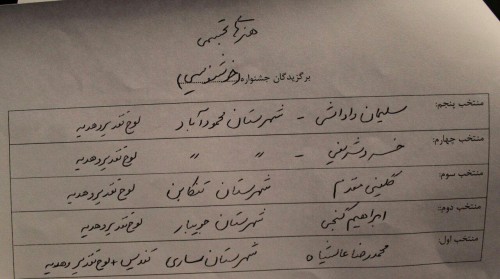 هنرهای تجسمی
برگزیدگان جشنواره (خوشنویسی)
منتخب پنجم: سلیمان داداشی - شهرستان محمودآباد لوح تقدیر و هدیه
منتخب چهارم: خسرو شریفی - " " لوح تقدیر و هدیه
منتخب سوم: گلینی مقدم شهرستان تنکابن لوح تقدیر و هدیه
منتخب دوم: ابراهیم گنجی شهرستان جویبار لوح تقدیر و هدیه
منتخب اول: محمدرضا عالیشاه شهرستان ساری تندیس + لوح تقدیر و هدیه